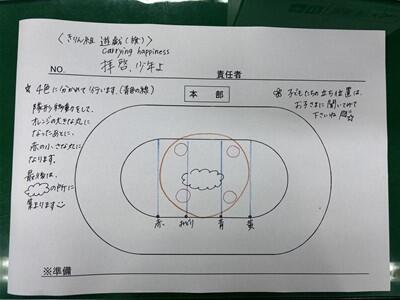 〈きりん組 遊戯(旗)〉
Carrying happiness
拝啓、少年よ
NO.
責任者
本部
☆ 4色に分かれて行います。(青色の線)
隊形移動をして、
オレンジの大きな丸に
なったあとに、
赤の小さな丸に
なります。
最後は、
の所に
集まります
※ 子どもたちの立ち位置は、
お子さまに聞いてみて
下さいね
赤 みどり 青 黄
※準備